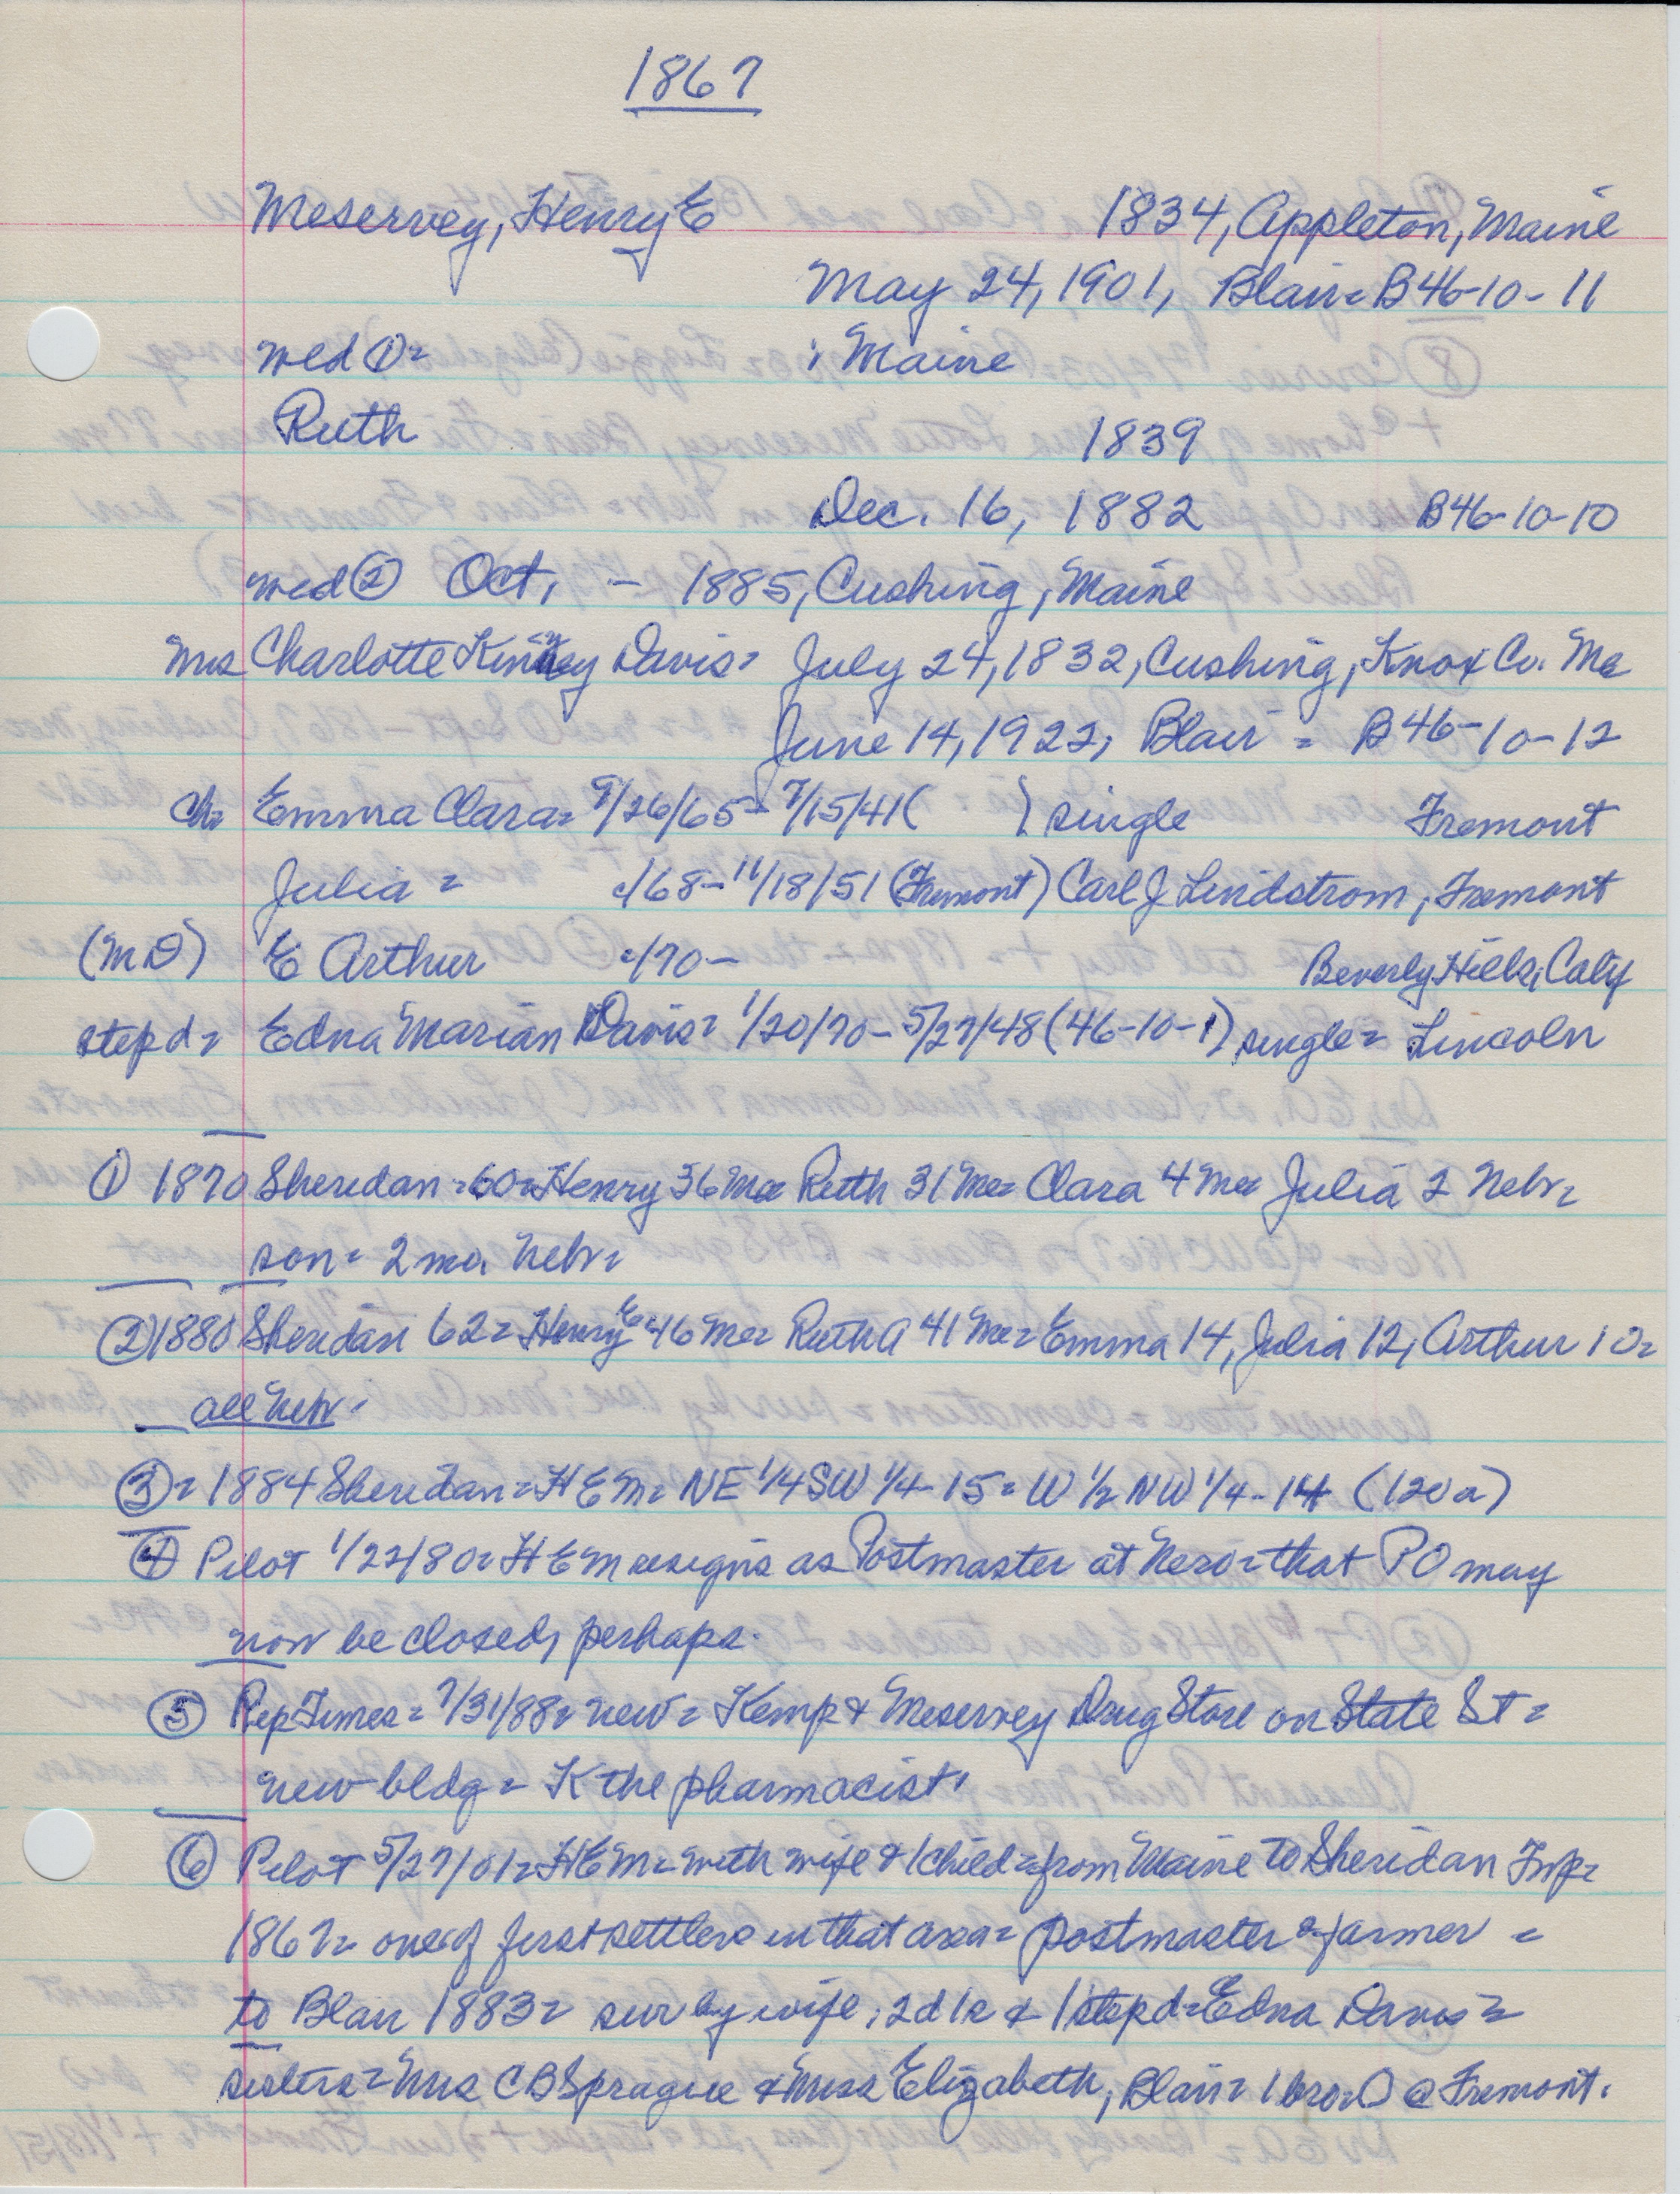 1867
Meservey, Henry E 1834, Appleton, Maine
May 24, 1901, Blair = B46-10-11
wed ① = ; Maine
Ruth 1839
Dec. 16, 1882 B46-10-10
wed ② Oct, - 1885, Cushing, Maine
Mrs Charlotte Kinney Davis = July 24, 1832, Cushing, Knox Co. Me
June 14, 1922, Blair = B46-10-12
ch = Emma Clara = 9/26/65 - 7/15/41 ( ) single Fremont
Julia = c/68 - 11/18/51 (Fremont) Carl J Lindstrom, Fremont
(MD) E Arthur c/70 - Beverly Hills, Calif
step d = Edna Marian Davis = 1/20/70 - 5/27/48 (46-10-1) single = Lincoln
① 1870 Sheridan = 60 = Henry 36 Me = Ruth 31 Me = Clara 4 Me = Julia 2 Nebr =
son = 2 mo. Nebr =
② 1880 Sheridan 62 = Henry E = 46 Me = Ruth A 41 Me = Emma 14, Julia 12, Arthur 10 =
all Nebr.
③ = 1884 Sheridan = H E M = NE 1/4 SW 1/4 - 15 = W 1/2 NW 1/4 - 14 (120 a)
④ Pilot 1/22/80 = H E M resigns as Postmaster at Nero = that PO may
now be closed, perhaps.
⑤ Rep Times = 7/31/88 = new = Kemp & Meservey Drug Store on State St =
new bldg = K the pharmacist.
⑥ Pilot 5/27/01 = H E M = with wife & 1 child = from Maine to Sheridan Twp =
1867 = one of first settlers in that area = postmaster & farmer =
to Blair 1883 = sur by wife, 2d 1s & 1 step d = Edna Davis =
sisters = Mrs C B Sprague & Miss Elizabeth, Blair = 1 bro = O @ Fremont.